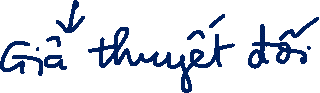 Giả thuyết đối